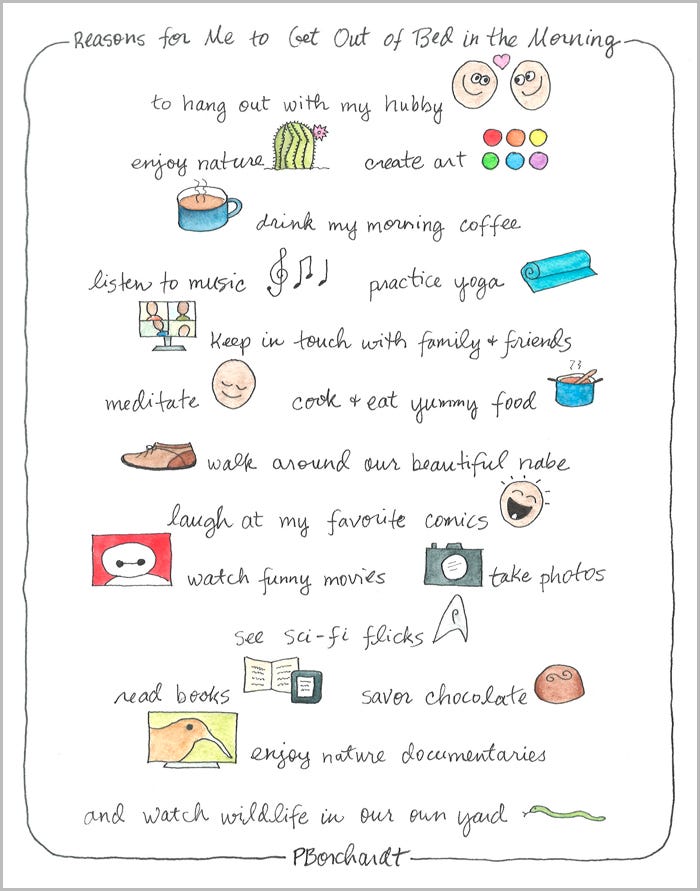 Reasons for Me to Get Out of Bed in the Morning
to hang out with my hubby
enjoy nature create art
drink my morning coffee
listen to music practice yoga
Keep in touch with family + friends
meditate cook + eat yummy food
walk around our beautiful nabe
laugh at my favorite comics
watch funny movies take photos
see sci-fi flicks
read books savor chocolate
enjoy nature documentaries
and watch wildlife in our own yard
PBorchardt